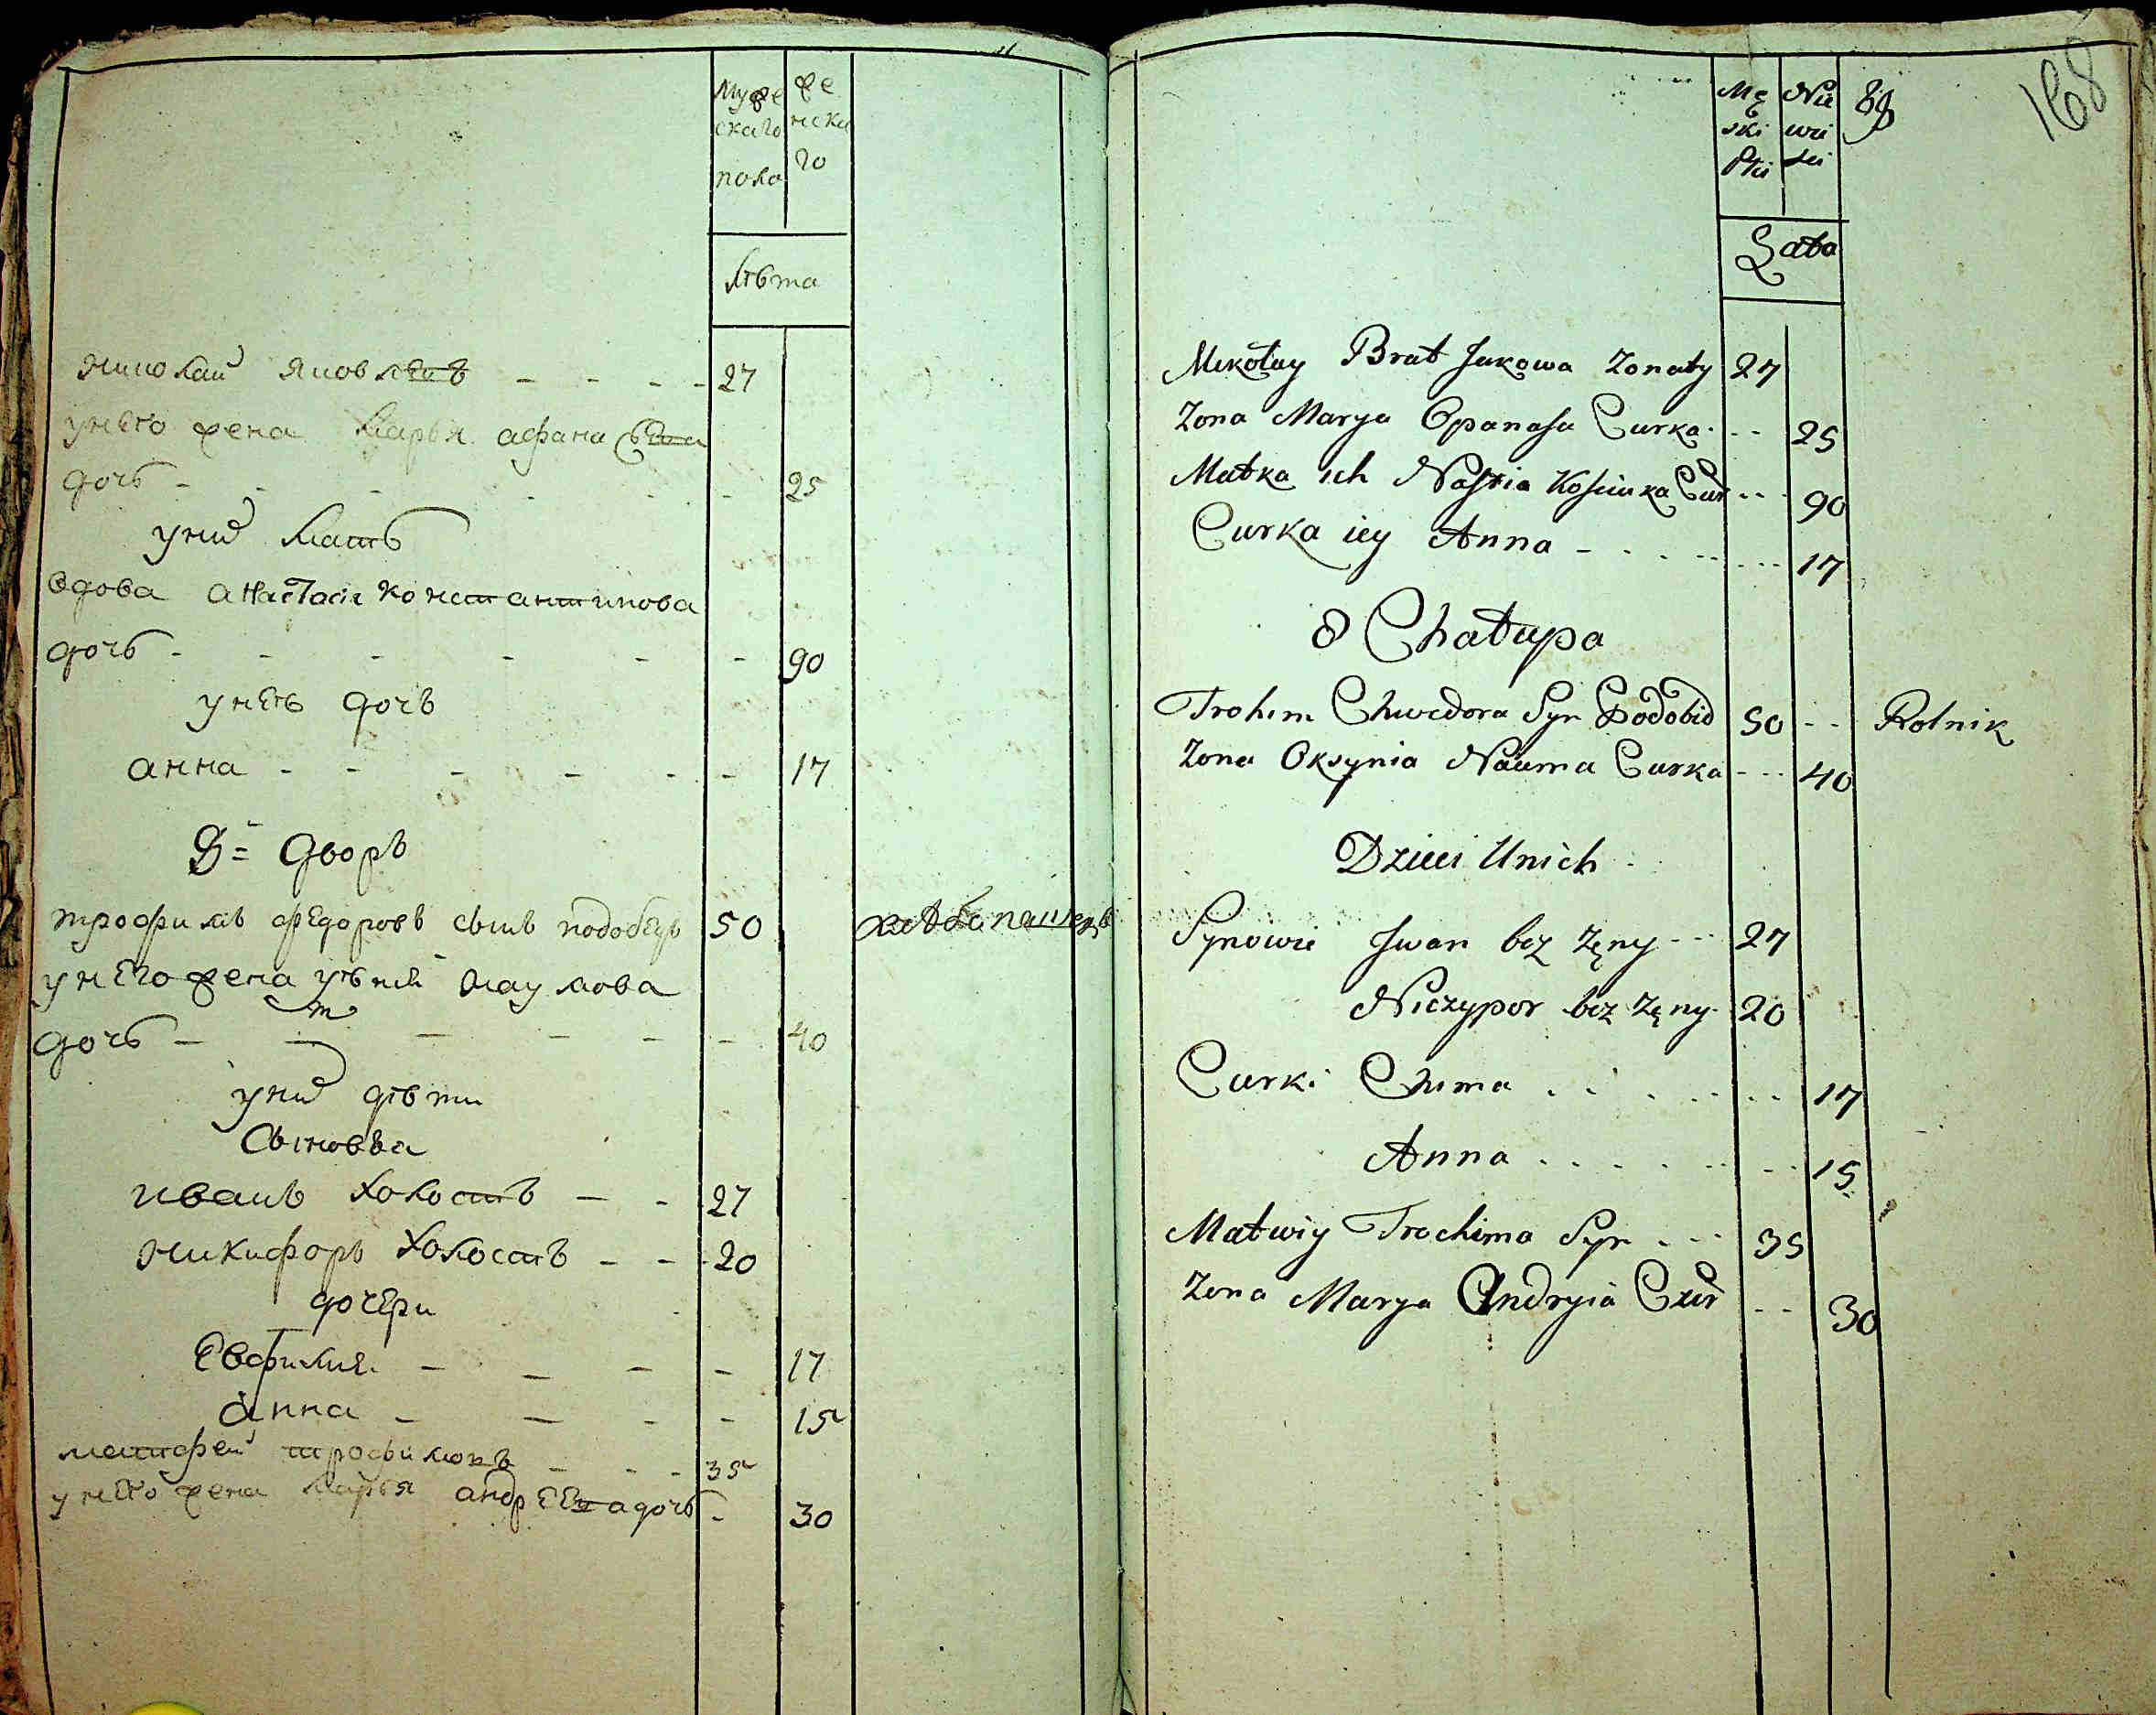 Муже
скаго
пола
же
нска
го
лѣта
николай яковлевъ - - - - 27
унего жена марья афанасьева
дочь - - - - - - 25
унихъ мать
вдова анастасия константинова
дочь - - - - - - 90
унеѣ дочь
анна - - - - - - 17
8= дворъ
трофимъ федоровъ сынъ подобедъ 50 хлебопашецъ
унего жена наумова
дочь - - - - - - 40
унихъ дѣти
Сыновья
иванъ холостъ - - 27
никифоръ холостъ - - 20
дочери
Евфимия - - - - 17
анна - - - - 15
матфей трофимовъ - - - 35
унего жена марья андреева дочь - 30
168
Mę
ski
Płci
Nie
wie
ści
89
Lata
Mikołay Brat Jakowa Zonaty 27
Zona Marya Opanasa Curka - - 25
Matka ich Nastia Kosciuka Cur - - 90
Curka iey Anna - - - - - - 17
8 Chałupa
Trohim Chwedora Syn Podobid 50 - - Rolnik
Zona Oksynia Nauma Curka - - - 40
Dzieci Unich
Synowie Jwan bez żęny - - - 27
Niczypor bez żęny 20
Curki Chima . . . . . . 17
Anna . . . . . . 15
Matwiy Trochima Syn - - - 35
Zona Marya Andryia Cur - - 30